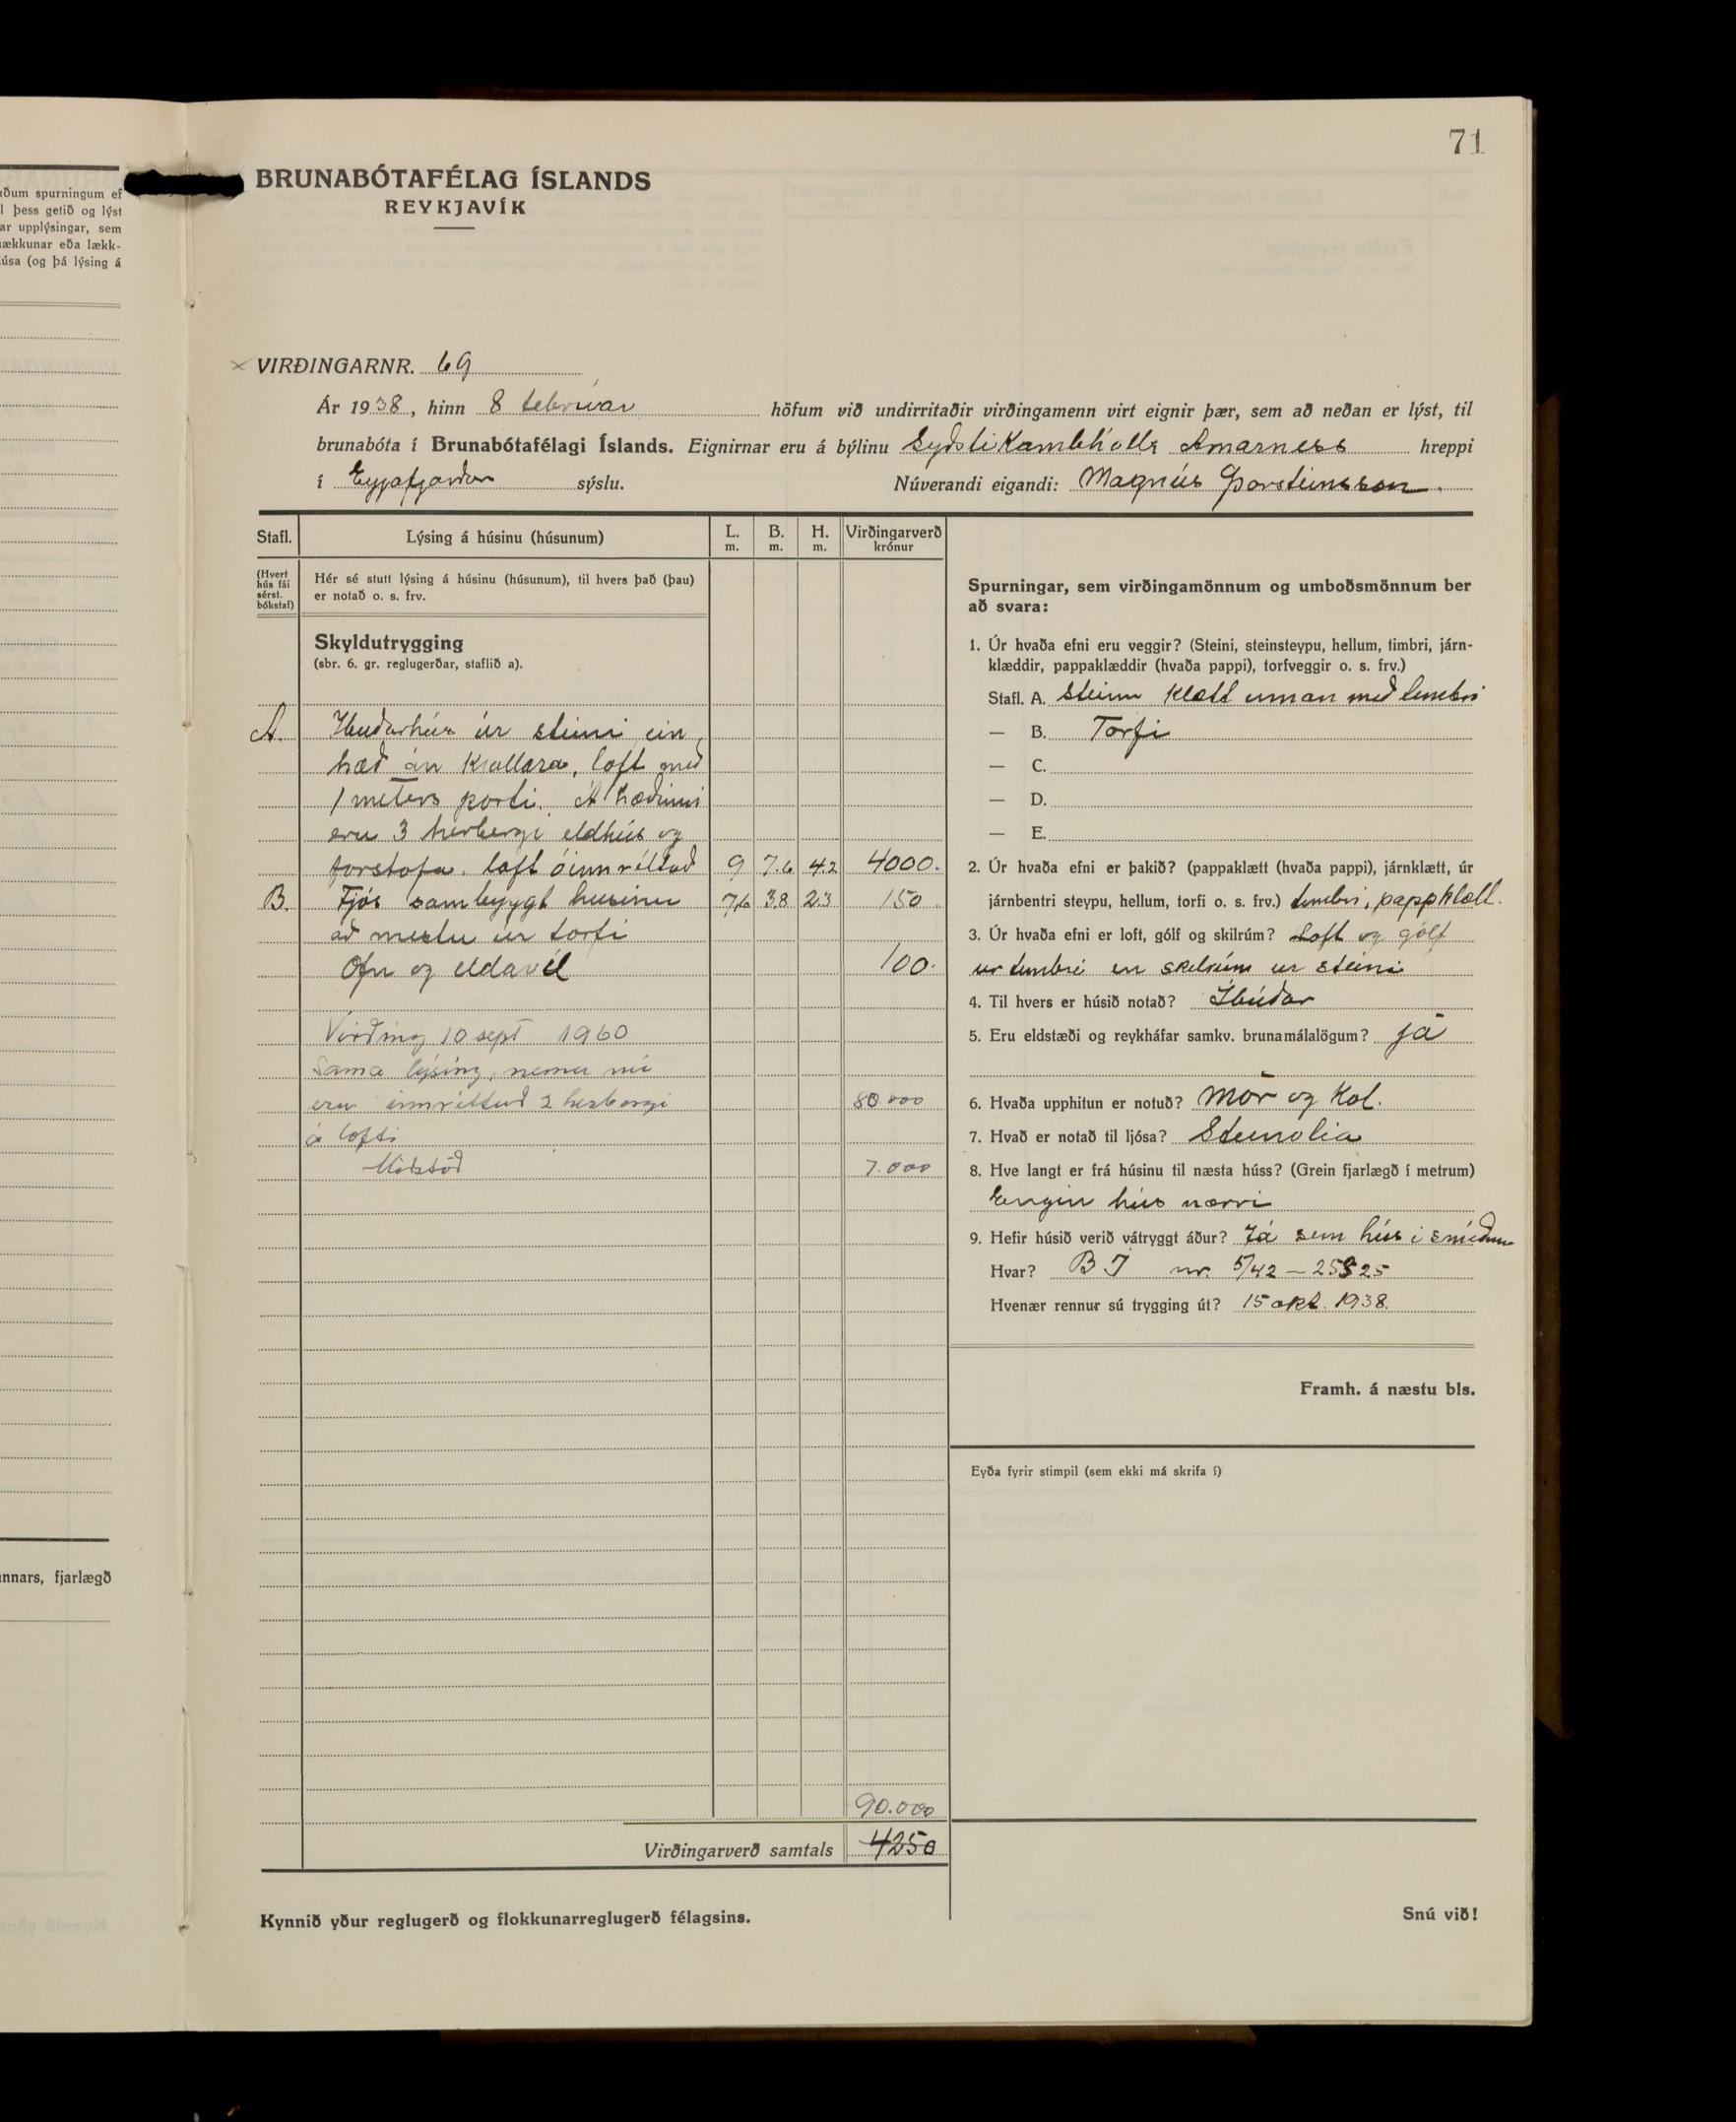 71
ðum spurningum ef
l þess getið og lýst
ar upplýsingar, sem
ækkunar eða lækk-
úsa (og þá lýsing á
nnars, fjarlægð
BRUNABÓTAFÉLAG ÍSLANDS
REYKJAVÍK
VIRÐINGARNR. 69
Ár 1938, hinn 8 febrúar höfum við undirritaðir virðingamenn virt eignir þær, sem að neðan er lýst, til
brunabóta í Brunabótafélagi Íslands. Eignirnar eru á býlinu Syðsti Kambhóll Arnarness hreppi
í Eyjafjarðar sýslu. Núverandi eigandi: Magnús Þorsteinsson.
Stafl. Lýsing á húsinu (húsunum) L. m. B. m. H. m. Virðingarverð krónur
(Hvert hús fái sérst. bókstaf)
Hér sé stutt lýsing á húsinu (húsunum), til hvers það (þau)
er notað o. s. frv.
Skyldutrygging
(sbr. 6. gr. reglugerðar, staflið a).
A. Íbúðarhús úr steini ein
hæð án kjallara, loft með
1 meters porti. Á hæðinni
eru 3 herbergi eldhús og
forstofa. loft óinnréttað 9 7.6 4.2 4000.
B. Fjós sambyggt húsinu 7.6 3.8 2.3 150.
að mestu úr torfi
Ofn og eldavél 100.
Virðing 10 sept 1960
Sama lýsing, nema nú
eru innréttuð 2 herbergi 80.000
á lofti
Miðstöð 7.000
90.000
Virðingarverð samtals 4250
Kynnið yður reglugerð og flokkunarreglugerð félagsins.
Spurningar, sem virðingamönnum og umboðsmönnum ber
að svara:
1. Úr hvaða efni eru veggir? (Steini, steinsteypu, hellum, timbri, járn-
klæddir, pappaklæddir (hvaða pappi), torfveggir o. s. frv.)
Stafl. A. Steinn klætt innan með timbri
— B. Torfi
— C.
— D.
— E.
2. Úr hvaða efni er þakið? (pappaklætt (hvaða pappi), járnklætt, úr
járnbentri steypu, hellum, torfi o. s. frv.) timbri, pappklætt.
3. Úr hvaða efni er loft, gólf og skilrúm? Loft og gólf
úr timbri en skilrúm úr steini
4. Til hvers er húsið notað? Íbúðar
5. Eru eldstæði og reykháfar samkv. brunamálalögum? já
6. Hvaða upphitun er notuð? Mór og kol.
7. Hvað er notað til ljósa? Steinolía
8. Hve langt er frá húsinu til næsta húss? (Grein fjarlægð í metrum)
Engin hús nærri
9. Hefir húsið verið vátryggt áður? Já sem hús í smíðum
Hvar? B Í nr. 5/42 — 25525
Hvenær rennur sú trygging út? 15 okt. 1938.
Framh. á næstu bls.
Eyða fyrir stimpil (sem ekki má skrifa í)
Snú við!